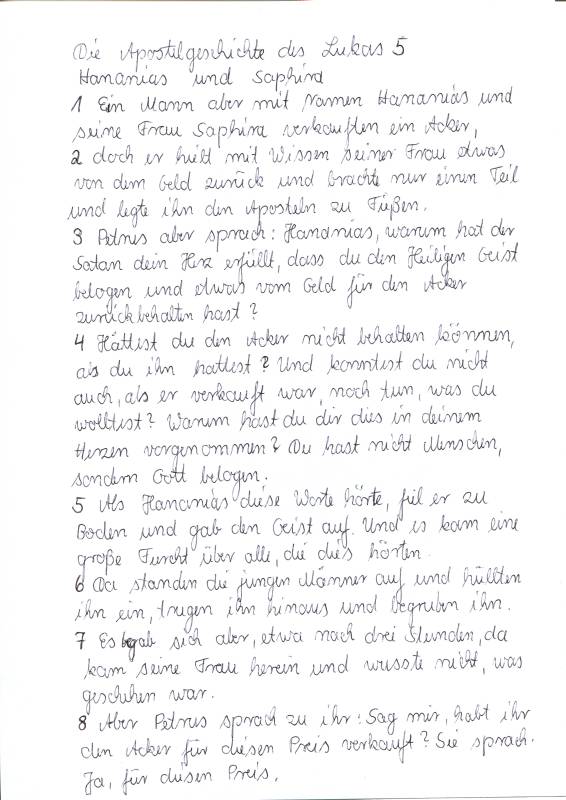 Die Apostelgeschichte des Lukas 5
Hananias und Saphira
1 Ein Mann aber mit Namen Hananias und
seine Frau Saphira verkauften ein Acker,
2 doch er hielt mit Wissen seiner Frau etwas
von dem Geld zurück und brachte nur einen Teil
und legte ihn den Aposteln zu Füßen.
3 Petrus aber sprach: Hananias, warum hat der
Satan dein Herz erfüllt, dass du den Heiligen Geist
belogen und etwas vom Geld für den Acker
zurückbehalten hast?
4 Hättest du den Acker nicht behalten können,
als du ihn hattest? Und konntest du nicht
auch, als er verkauft war, noch tun, was du
wolltest? Warum hast du dir dies in deinem
Herzen vorgenommen? Du hast nicht Menschen,
sondern Gott belogen.
5 Als Hananias diese Worte hörte, fiel er zu
Boden und gab den Geist auf. Und es kam eine
große Furcht über alle, die dies hörten.
6 Da standen die jungen Männer auf und hüllten
ihn ein, trugen ihn hinaus und begruben ihn.
7 Es begab sich aber, etwa nach drei Stunden, da
kam seine Frau herein und wusste nicht, was
geschehen war.
8 Aber Petrus sprach zu ihr: Sag mir, habt ihr
den Acker für diesen Preis verkauft? Sie sprach.
Ja, für diesen Preis.